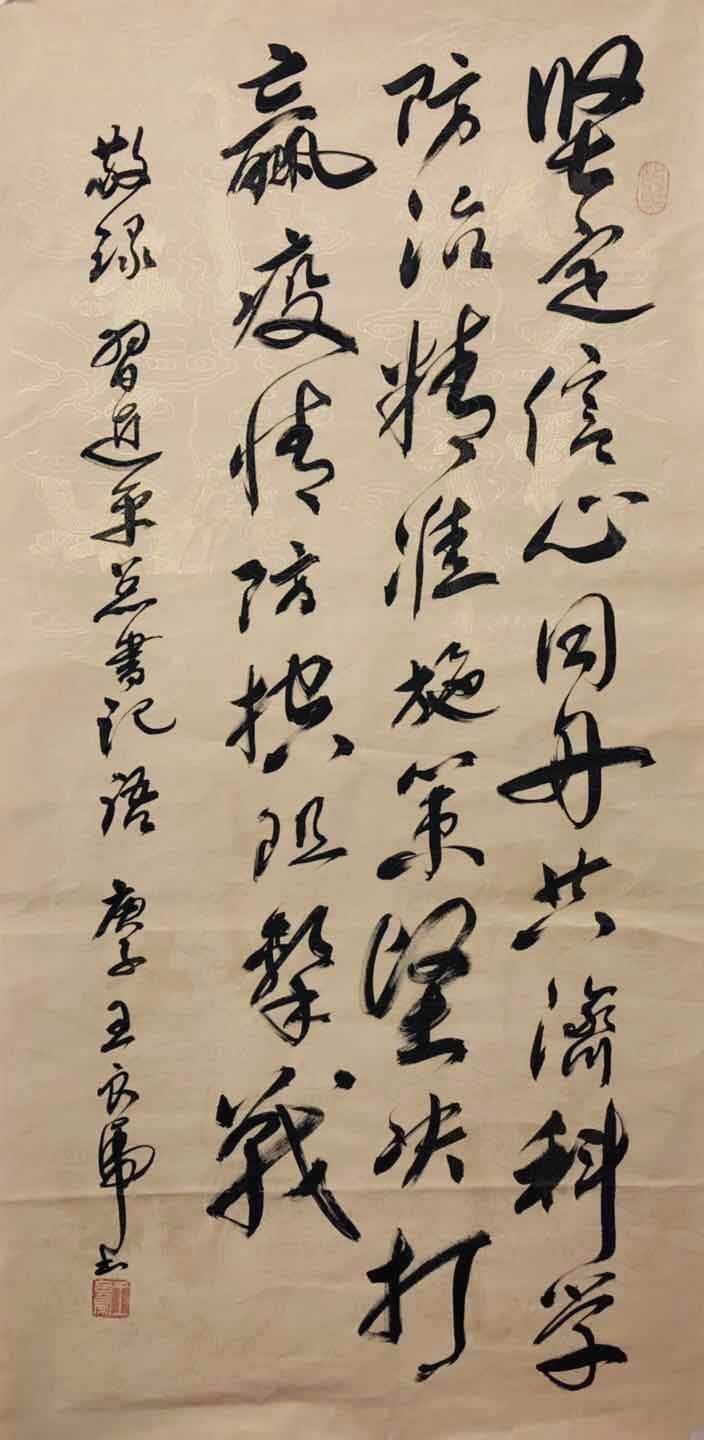 坚定信心同舟共济科学
防治精准施策坚决打
赢疫情防控阻击战
敬录 习近平总书记语 庚子 王良虎书